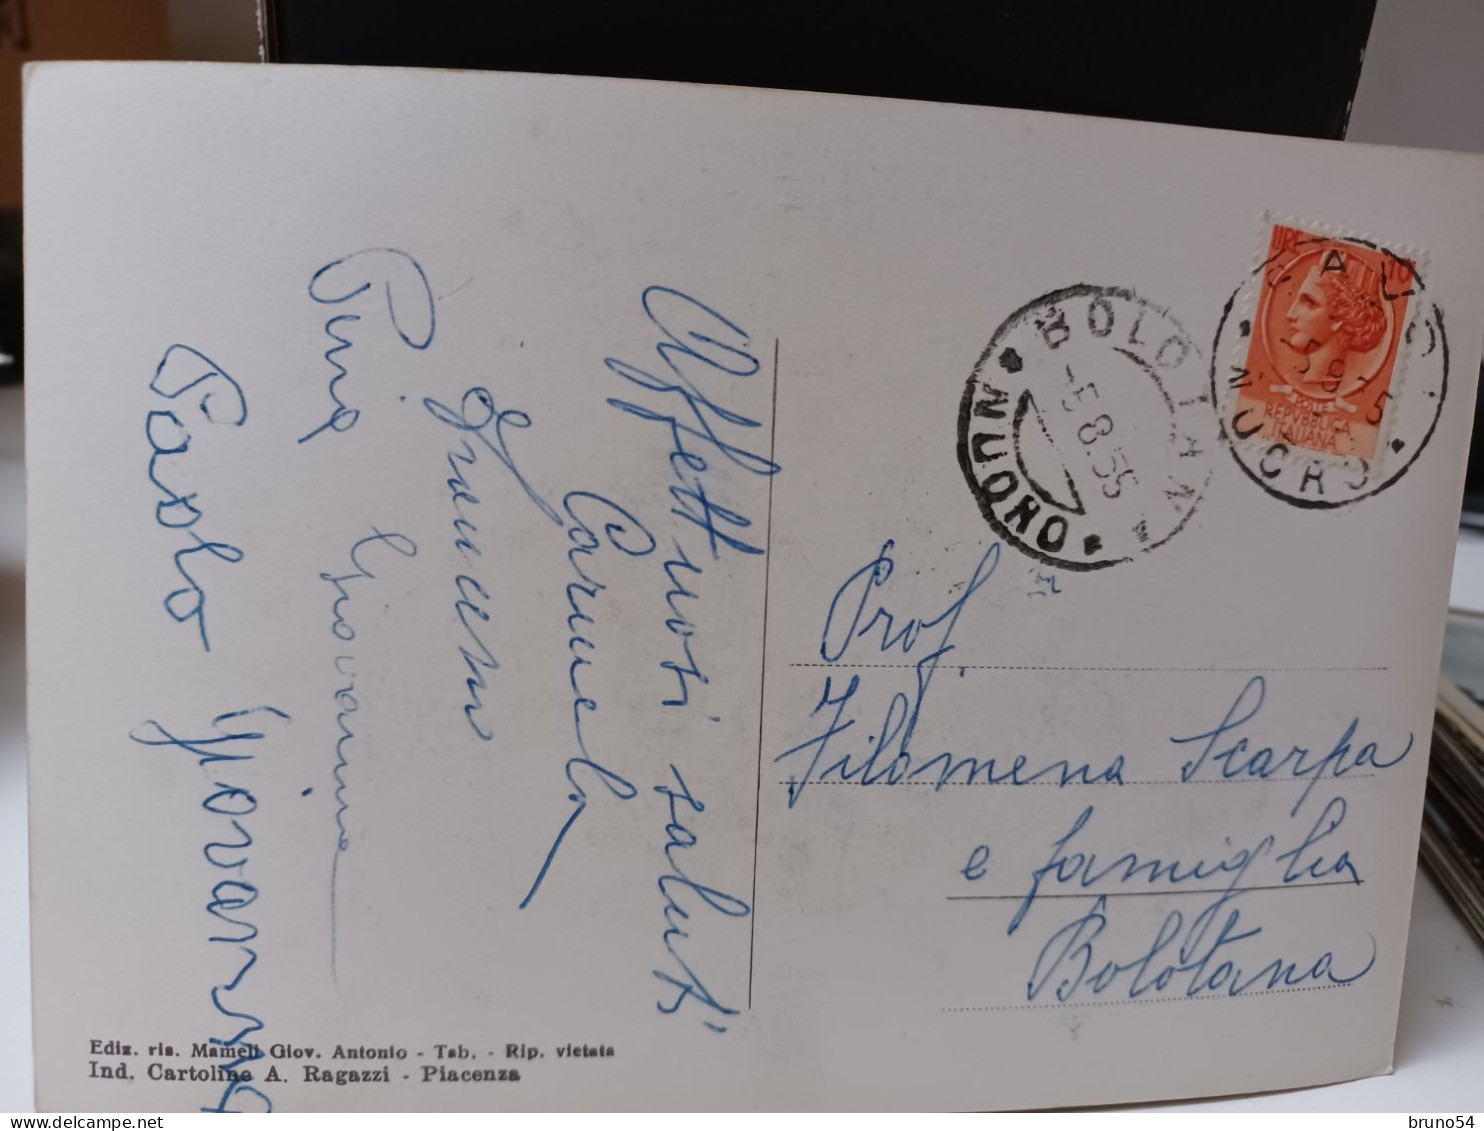 Affettuosi saluti
Carmela
Pina Giovannina
Paolo Giovanni
Ediz. ris. Mameli Giov. Antonio - Tab. - Rip. vietata
Ind. Cartoline A. Ragazzi - Piacenza
BOLOTANA
-5.8.55
NUORO
LIRE 10
REPVBBLICA
ITALIANA
NUORO
Prof.
Filomena Scarpa
e famiglia
Bolotana
bruno54